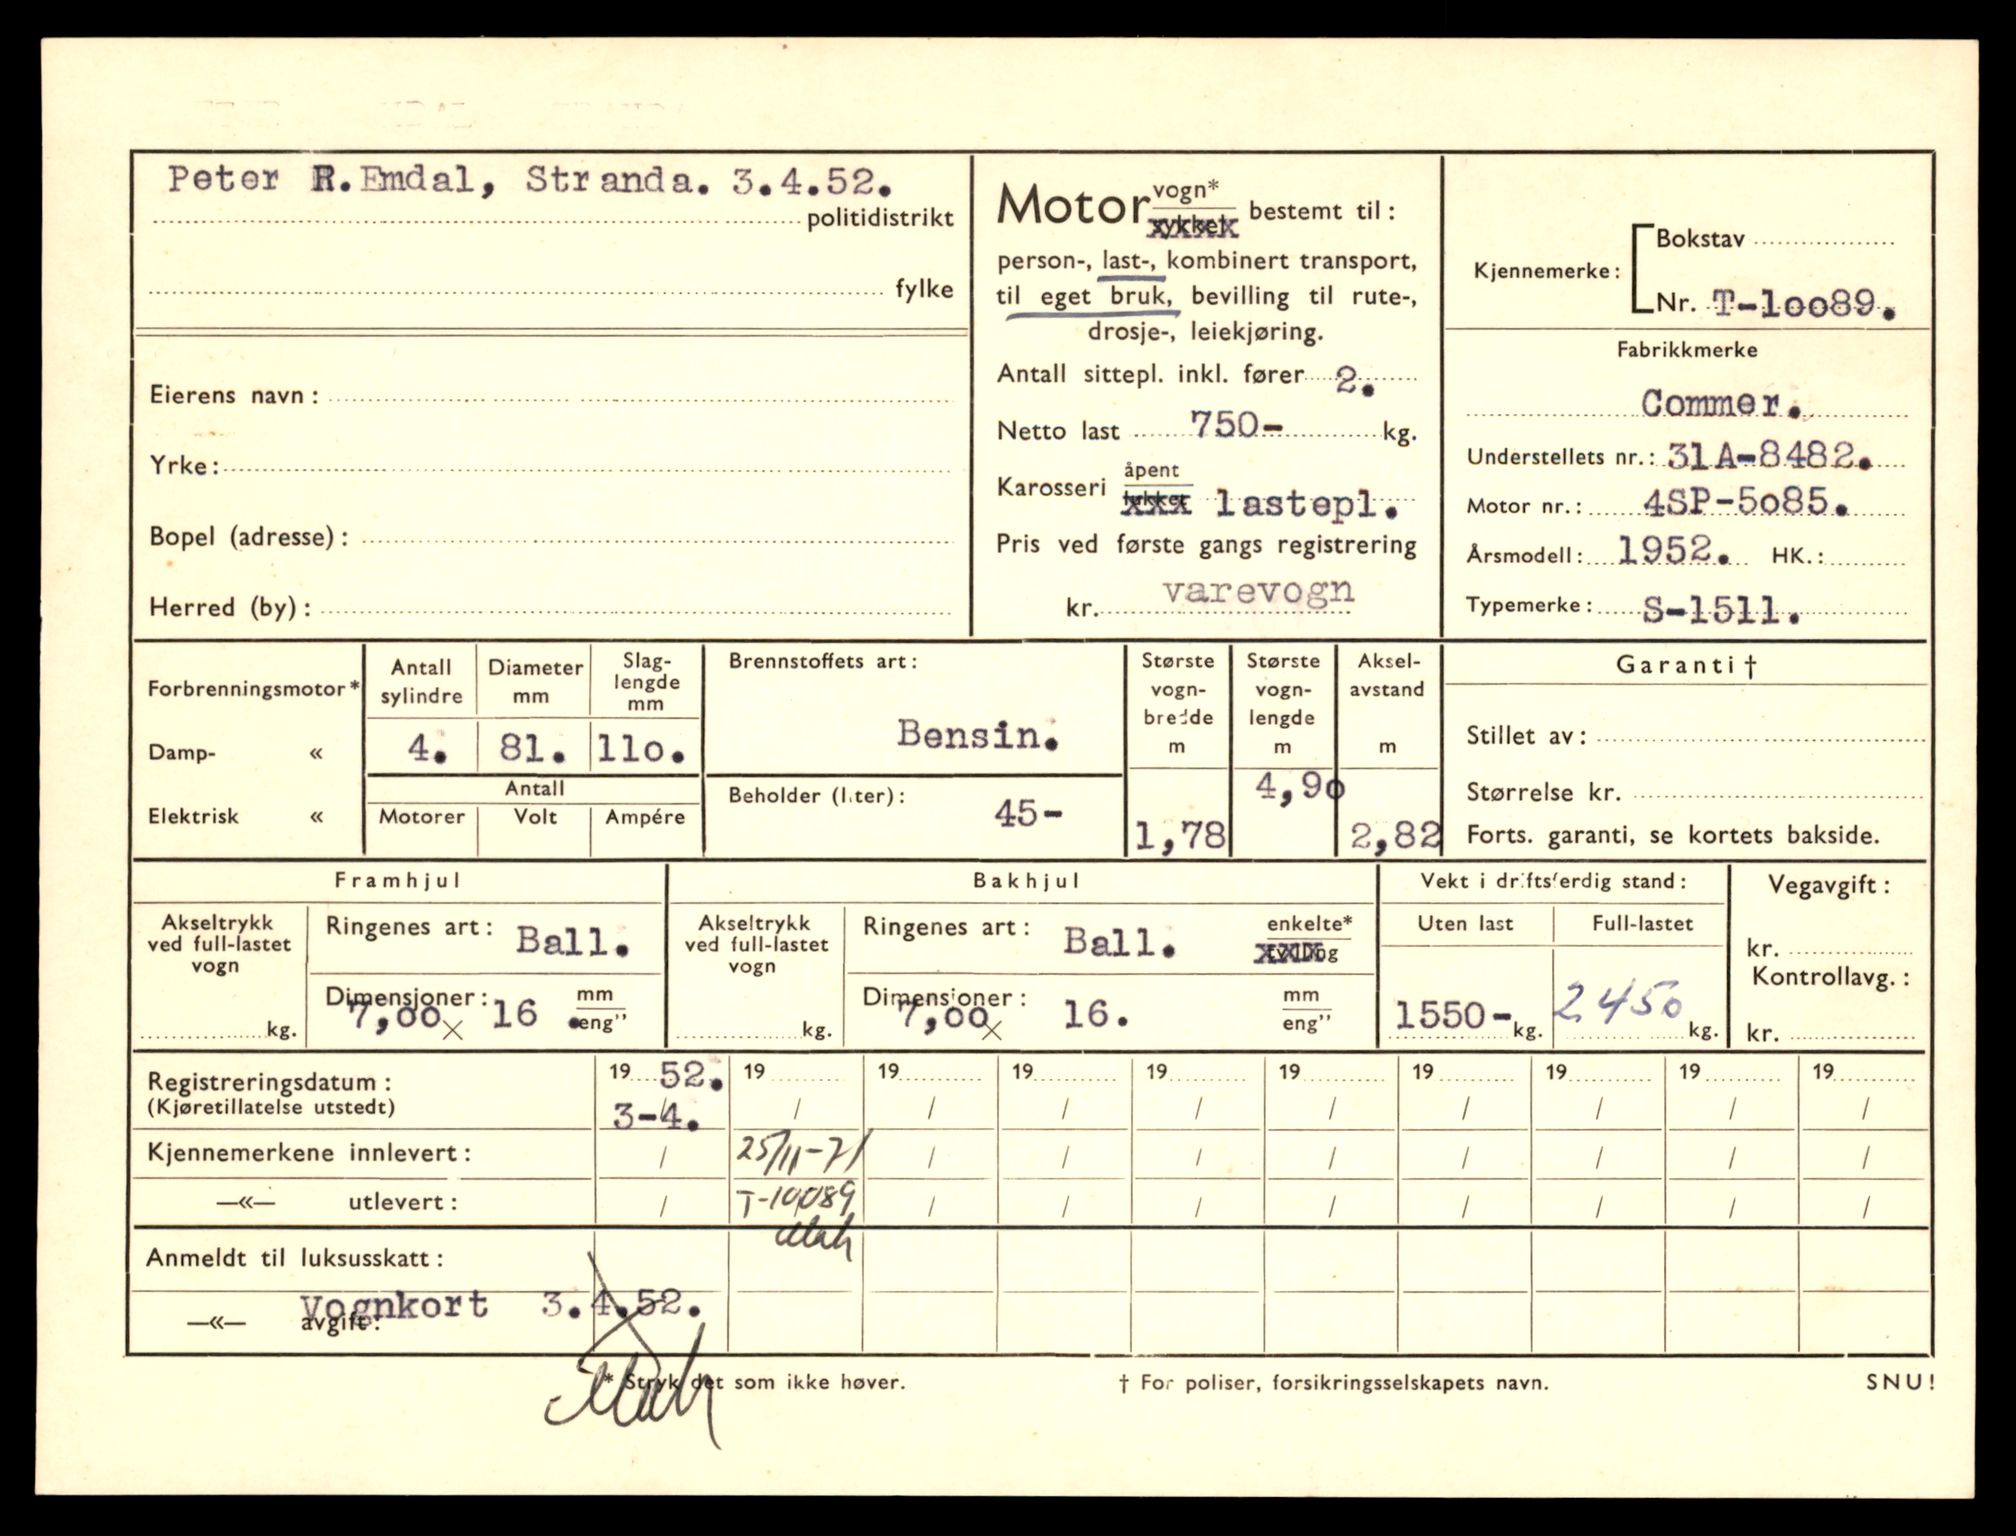 Peter R. Emdal, Stranda. 3.4.52.
politidistrikt
fylke
Eierens navn:
Yrke:
Bopel (adresse):
Herred (by):
Motor vogn* bestemt til:
sykkel
person-, last-, kombinert transport,
til eget bruk, bevilling til rute-,
drosje-, leiekjøring.
Antall sittepl. inkl. fører 2.
Netto last 750- kg.
Karosseri åpent
lukket lastepl.
Pris ved første gangs registrering
kr. varevogn
Kjennemerke: Bokstav
Nr. T-10089.
Fabrikkmerke
Commer.
Understellets nr.: 31A-8482.
Motor nr.: 4SP-5085.
Årsmodell: 1952. HK.:
Typemerke: S-1511.
Forbrenningsmotor*
Damp- «
Elektrisk «
Antall sylindre
4.
Diameter mm
81.
Slag-
lengde
mm
110.
Antall
Motorer Volt Ampére
Brennstoffets art:
Bensin.
Beholder (liter):
45-
Største
vogn-
bredde
m
1,78
Største
vogn-
lengde
m
4,90
Aksel-
avstand
m
2,82
Garanti †
Stillet av:
Størrelse kr.
Forts. garanti, se kortets bakside.
Framhjul
Akseltrykk
ved full-lastet
vogn
kg.
Ringenes art: Ball.
Dimensjoner: mm
7,00 × 16. eng"
Bakhjul
Akseltrykk
ved full-lastet
vogn
kg.
Ringenes art: Ball. enkelte*
tvilling
Dimensjoner: mm
7,00 × 16. eng"
Vekt i driftsferdig stand:
Uten last Full-lastet
1550- kg. 2450 kg.
Vegavgift:
kr.
Kontrollavg.:
kr.
Registreringsdatum: 19 52. 19 19 19 19 19 19 19 19 19
(Kjøretillatelse utstedt) 3-4. / / / / / / / / /
Kjennemerkene innlevert: / 25/11-71 / / / / / / / /
—«— utlevert: / T-10089 / / / / / / / /
Anmeldt til luksusskatt:
Vognkort 3.4.52.
—«— avgift:
* Stryk det som ikke høver. † For poliser, forsikringsselskapets navn. SNU!